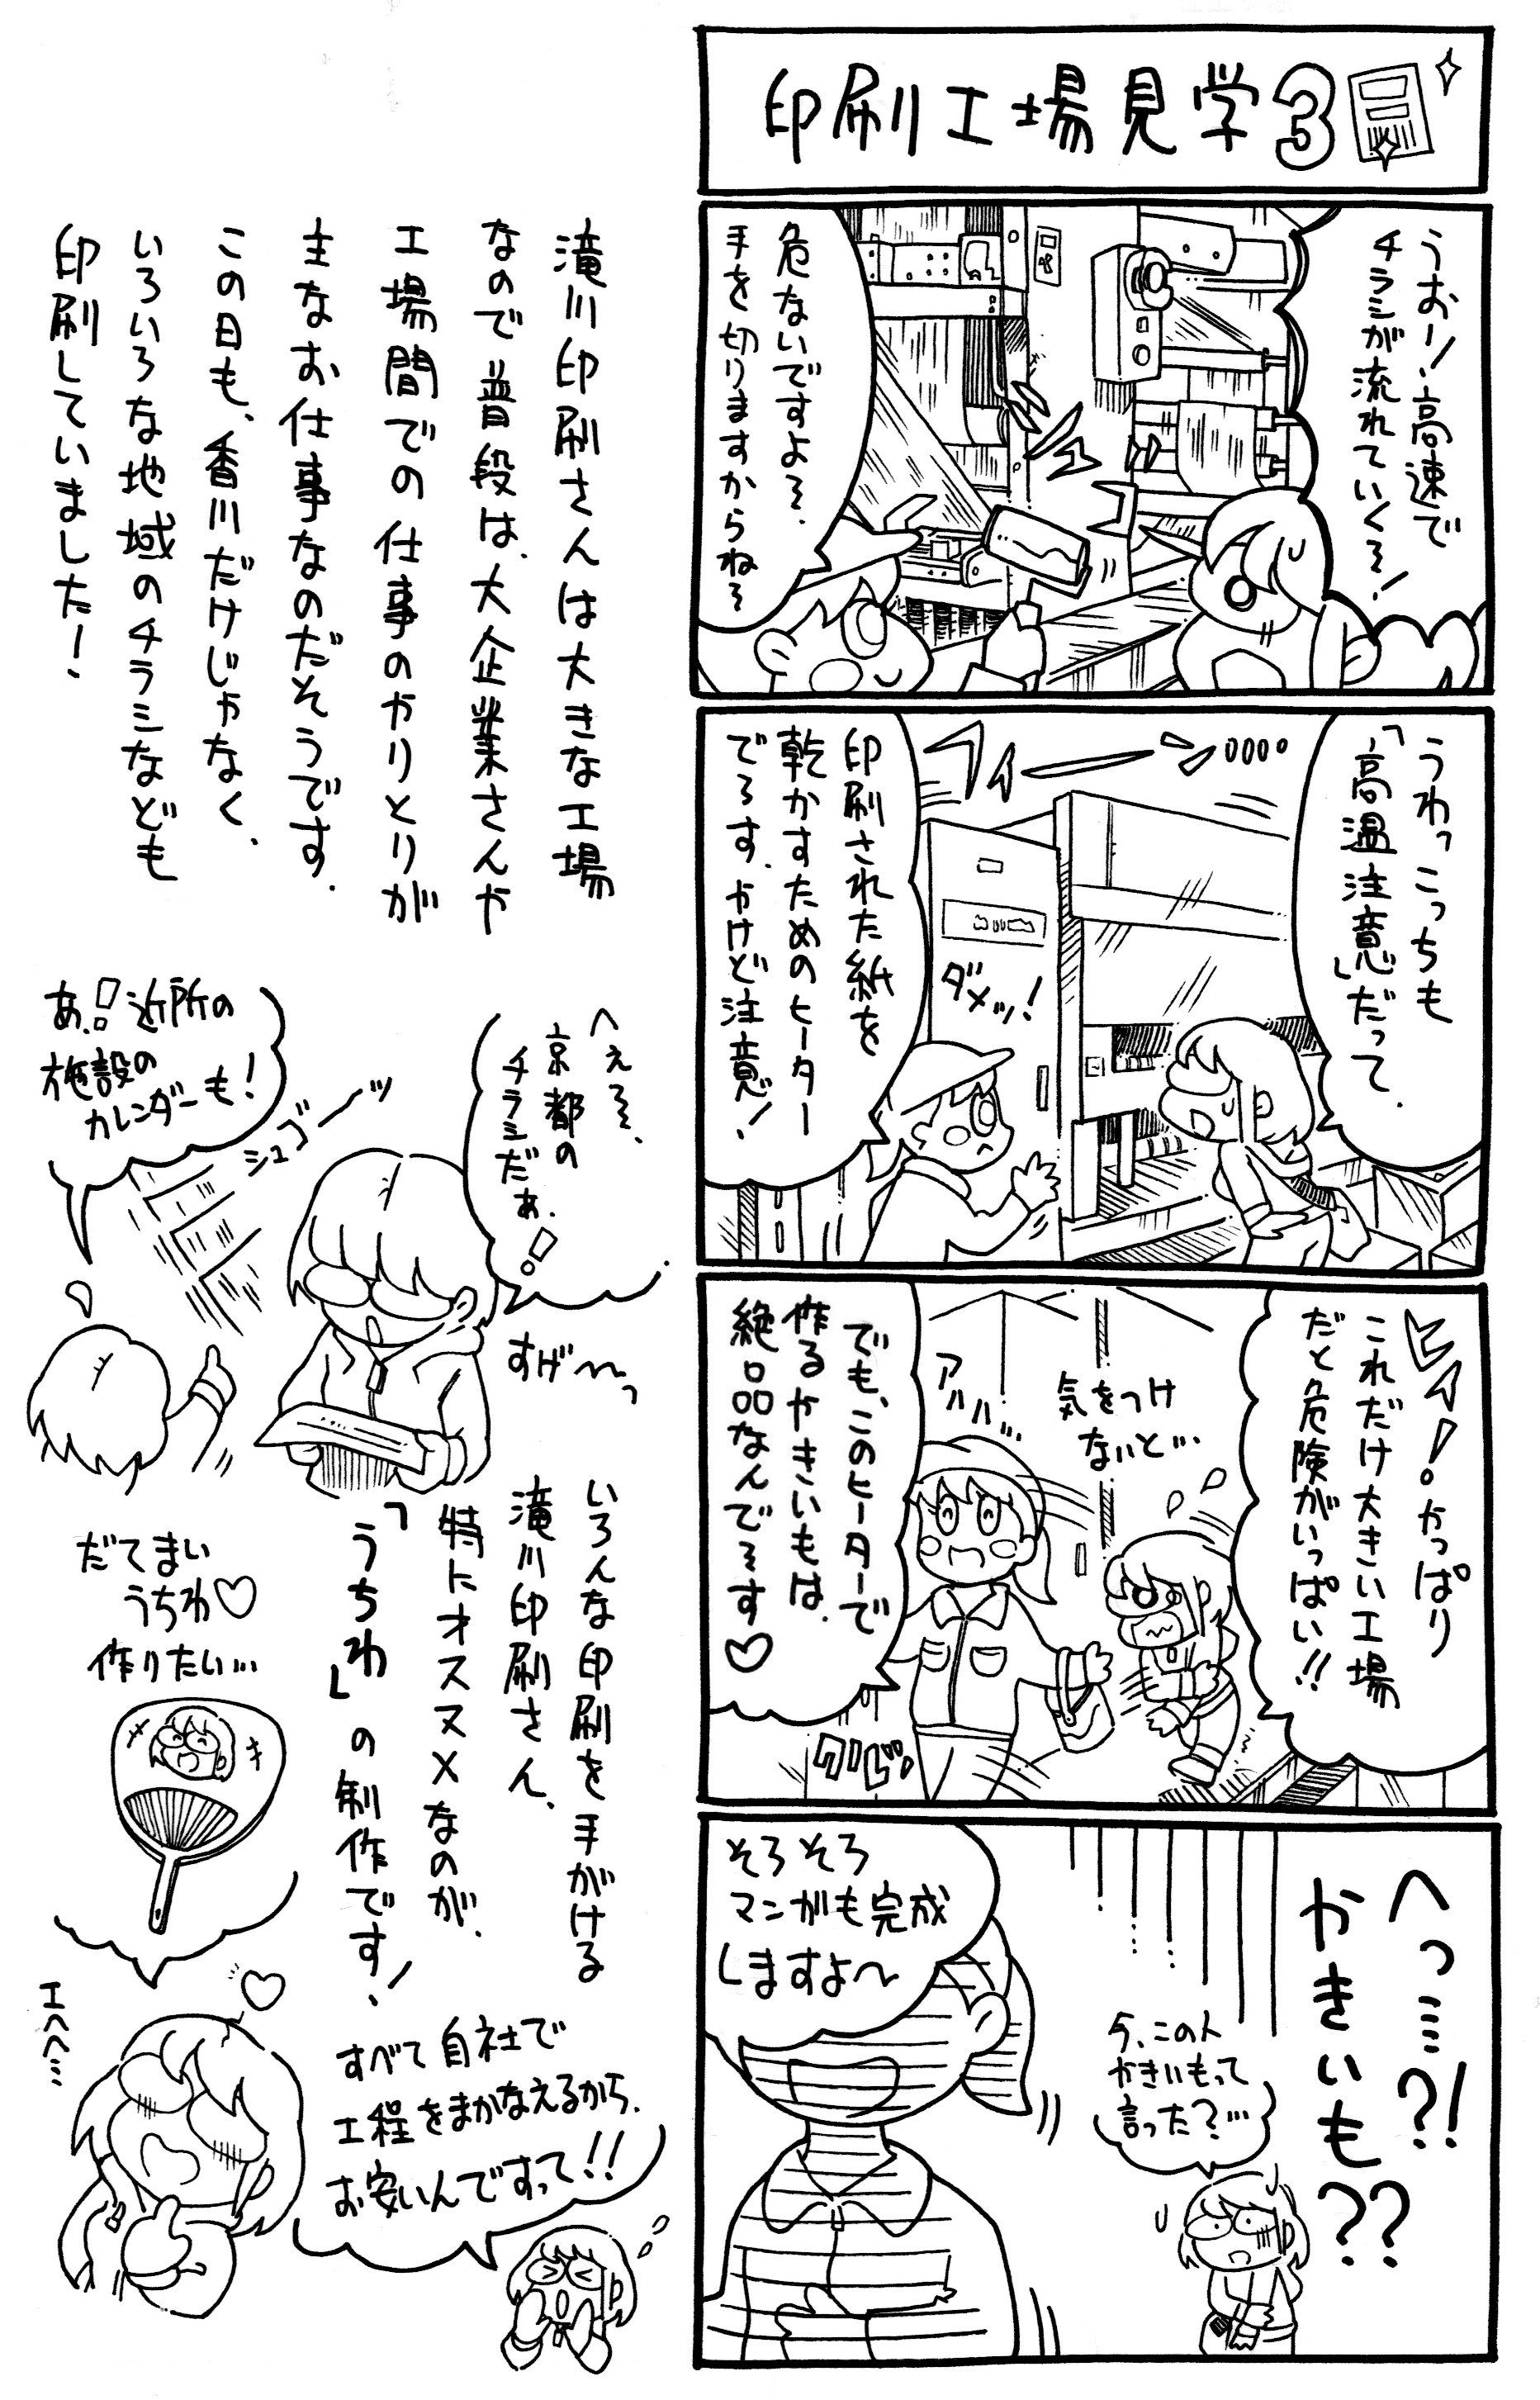 印刷工場見学3
うおーっ!高速で
チラシが流れていくぞ!
危ないですよぞ.
手を切りますからねぞ
うわっこっちも
「高温注意」だって.
ブィーーン
ダメッ!
印刷された紙を
乾かすためのヒーター
でうす.やけど注意!
ヒィ!やっぱり
これだけ大きい工場
だと危険がいっぱい!!
気をつけ
ないと…
アハハハ…
でも、このヒーターで
作るやきいもは、
絶品なんでぞす♡
へっ…?!
やきいも??
今、この人
やきいもって
言った?…
そろそろ
マンガも完成
しますよ〜
滝川印刷さんは大きな工場
なので普段は、大企業さんや
工場間での仕事のやりとりが
主なお仕事なのだそうです.
この日も、香川だけじゃなく、
いろいろな地域のチラシなども
印刷していました!
へぇぞ、
京都の
チラシだぁ.!
すげ〜っ
シュゴーーッ
あ!近所の
施設の
カレンダーも!
いろんな印刷を手がける
滝川印刷さん、
特にオススメなのが、
「うちわ」の制作です!
だてまい
うちわ♡
作りたい…
エヘヘ…
すべて自社で
工程をまかなえるから、
お安いんですって!!